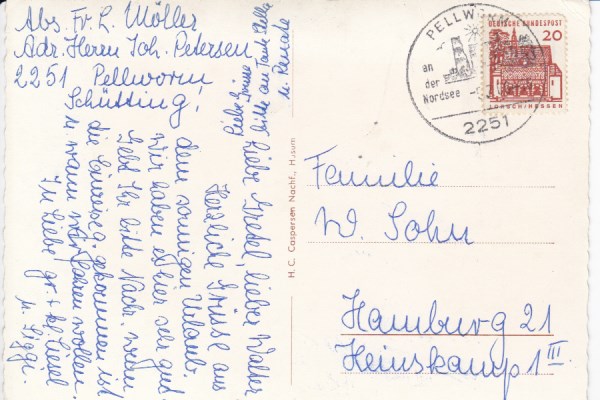 Abs. Fr. L. Möller
Adr. Herrn Joh. Petersen
2251 Pellworm
Schütting!
Liebe Gretel, lieber Walter
Herzliche Grüsse aus
dem sonnigen Urlaub.
Wir haben es hier sehr gut
Gebt Ihr bitte Nachr. wenn
die Einreiseg. gekommen ist
u. wann wir fahren wollen.
In Liebe gr. + kl. Liesel
u. Siggi.
Liebe Grüsse
bitte an Tante Hella
u. Renate
H. C. Caspersen Nachf., Husum
PELLWORM
an
der
Nordsee
2251
DEUTSCHE BUNDESPOST
20
LORSCH/HESSEN
Familie
W. Sohn
Hamburg 21
Heinskamp 1 III.